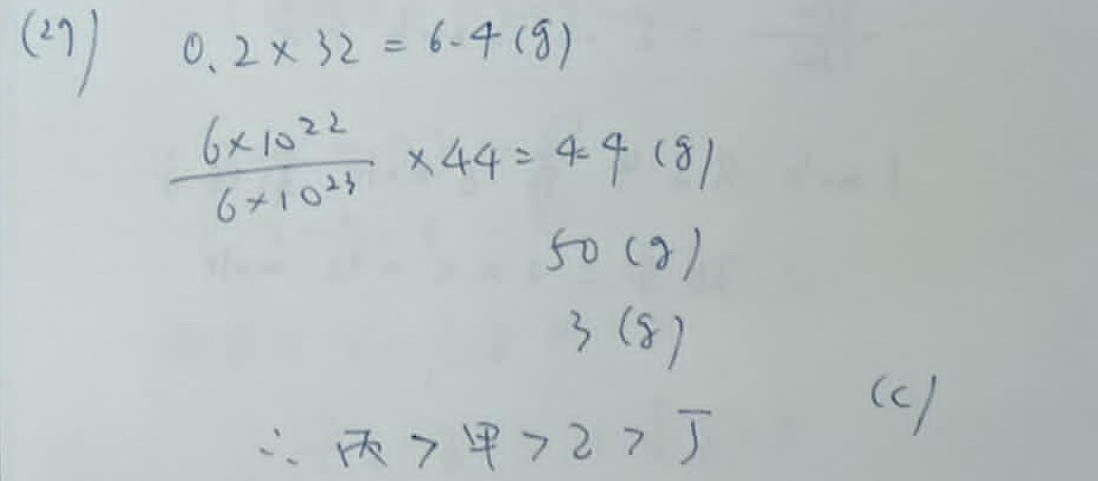 (29) 0.2 × 32 = 6.4 (g)
6×10²² / 6×10²³ × 44 = 4.4 (g)
50 (g)
3 (g)
(C)
∴ 丙 > 甲 > 乙 > 丁